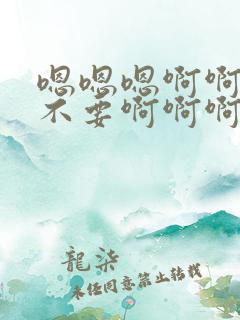 嗯嗯嗯啊啊
不要啊啊啊
龍柒
未经同意禁止转载